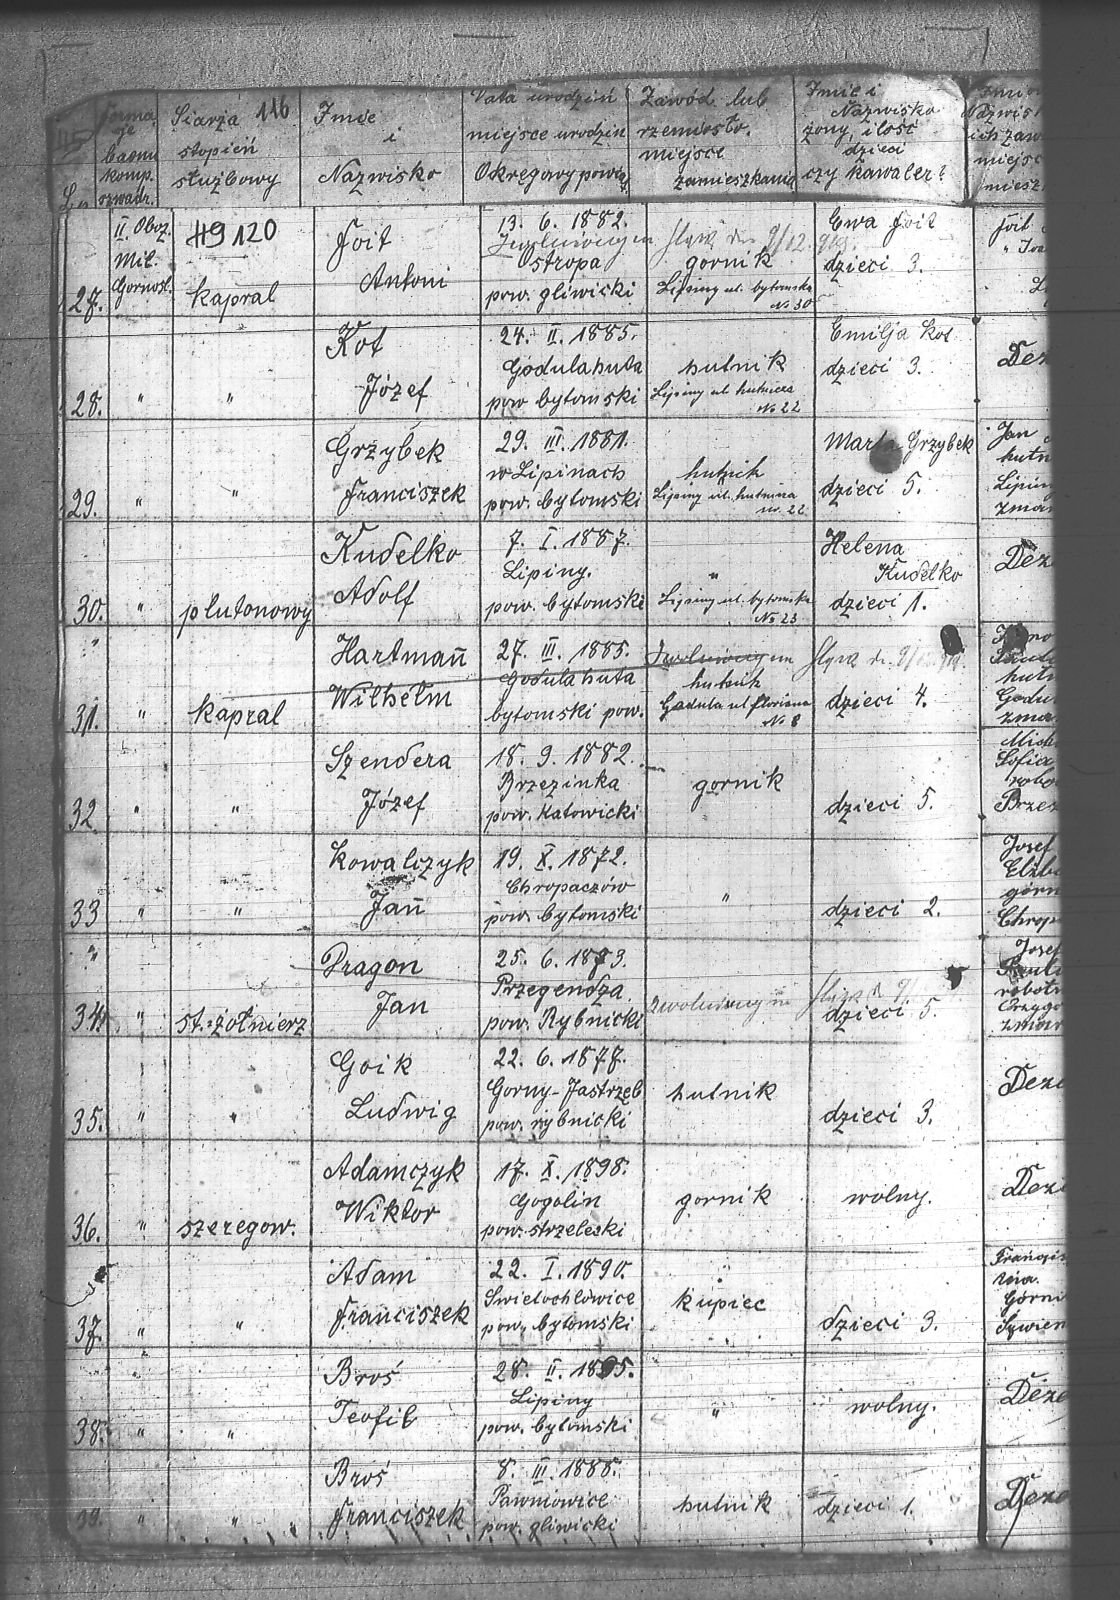 L.p.
Forma
cje
baonu
komp.
szwadr.
Siarża 116
stopień
służbowy
Imie
i
Nazwisko
Data urodzin
miejsce urodzin
Okręgowy powiat
Zawód lub
rzemiosło.
miejsce
zamieszkania
Imie i
Nazwisko
żony, ilość
dzieci
czy kawaler?
Imion
Nazwisk
ich zaw
miejsc
mieszk
27.
II. Oboz.
Mil.
Gornośl.
119 120
kapral
Foit
Antoni
13. 6. 1882.
Zwolniony
Ostropa
pow. gliwicki
gornik
Lipiny ul. bytomska
No 30
Ewa Foit
dzieci 3.
Foit
28.
"
"
Kot
Józef
24. II. 1885.
Godulahuta
pow bytomski
hutnik
Lipiny ul. hutnicza
No 22
Emilja Kot
dzieci 3.
Dez
29.
"
"
Grzybek
Franciszek
29. III. 1881.
w Lipinach
pow. bytomski
hutnik
Lipiny ul. hutnicza
nr. 22
Marta Grzybek
dzieci 5.
Jan
hutn
Lipin
zmar
30.
"
plutonowy
Kudelko
Adolf
7. I. 1887.
Lipiny.
pow. bytomski
"
Lipiny ul. bytomska
No 23
Helena
Kudelko
dzieci 1.
Dez
31.
"
kapral
Hartmañ
Wilhelm
27. III. 1885.
Godulahuta
bytomski pow.
hutnik
Godula ul floriana
No 8
dzieci 4.
hutn
Godu
zmar
32.
"
"
Szendera
Józef
18. 9. 1882.
Brzezinka
pow. Katowicki
gornik
dzieci 5.
Mich
Sofia
robo
Brzez
33
"
"
Kowalczyk
Jañ
19. X. 1872.
Chropaczów
pow. bytomski
"
dzieci 2.
Josef
Elżb
górn
Chrop
34.
"
st. żołnierz
Dragon
Jan
25. 6. 1873.
Przegendza
pow. Rybnicki
dzieci 5.
Josef
Paul
robotn
zmar
35.
"
"
Goik
Ludwig
22. 6. 1877.
Gorny-Jastrzęb
pow. rybnicki
hutnik
dzieci 3.
Deze
36.
"
szeregow.
Adamczyk
Wiktor
17. X. 1898.
Gogolin
pow. strzeleski
gornik
wolny.
Deze
37.
"
"
Adam
Franciszek
22. I. 1890.
Swietochłowice
pow. bytomski
kupiec
dzieci 3.
Francis
Górni
38.
"
"
Broś
Teofil
28. II. 1895.
Lipiny
pow. bytomski
"
wolny.
Deze
39.
"
"
Broś
Franciszek
8. III. 1888.
Pawniowice
pow. gliwicki
hutnik
dzieci 1.
Deze